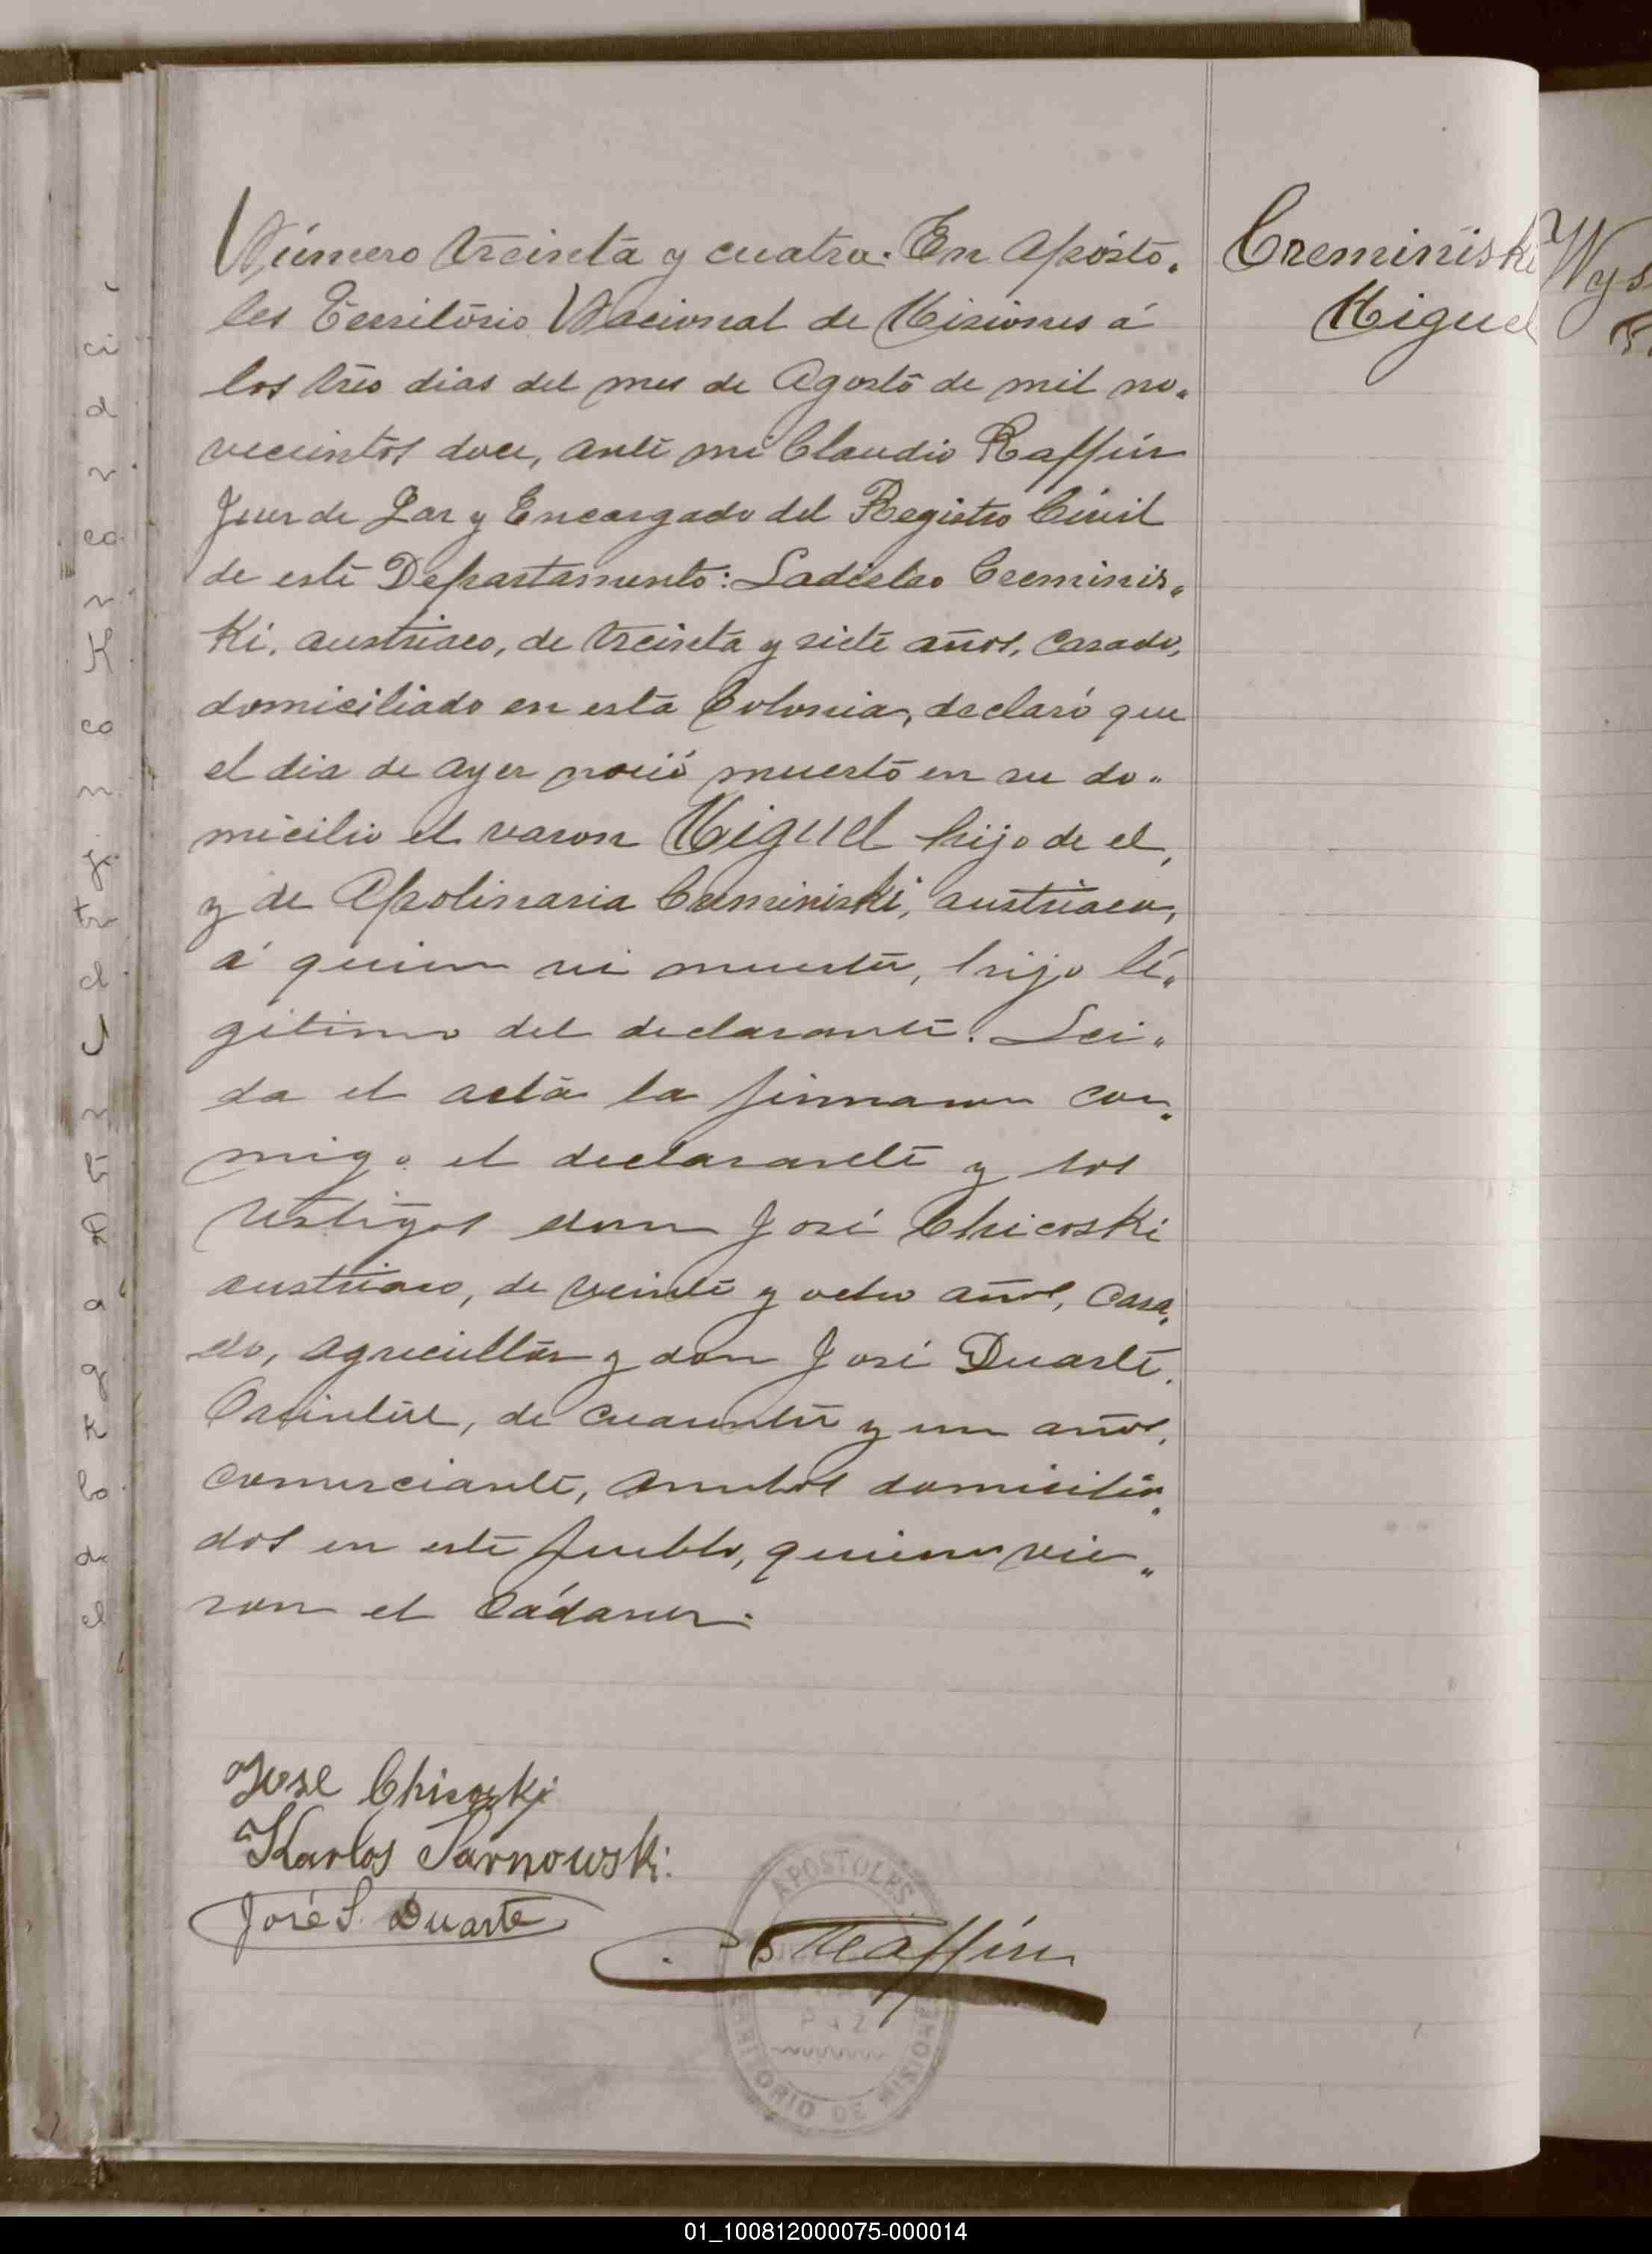 Creminiski
Miguel
Wys
Número treinta y cuatro. En Apósto„
les Territorio Nacional de Misiones á
los tres dias del mes de Agosto de mil no„
vecientos doce, ante mi Claudio Raffin
Juez de Paz y Encargado del Registro Civil
de este Departamento: Ladislao Creminis„
Ki, austriaco, de treinta y siete años, casado,
domiciliado en esta Colonia, declaró que
el dia de ayer nació muerto en su do„
micilio el varon Miguel hijo de el,
y de Apolinaria Creminiski, austriaca,
á quien vi muerto, hijo le„
gitimo del declarante. Lei„
da el acta la firmaron con„
migo el declarante y los
testigos don José Chicoski
austriaco, de veinte y ocho años, casa„
do, agricultor y don José Duarte,
de cuarenta y un años,
comerciante, ambos domicilia„
dos en este pueblo, quienes vie„
ron el cádaver.
Jose Chicoski
Karlos Sarnowski
José S. Duarte
Raffin
APOSTOLES
PAZ
TERRITORIO DE MISIONES
ci
d
r
ca
r
K
co
n
je
tr
d
r
t
a
g
K
lo
de
el
01_100812000075-000014